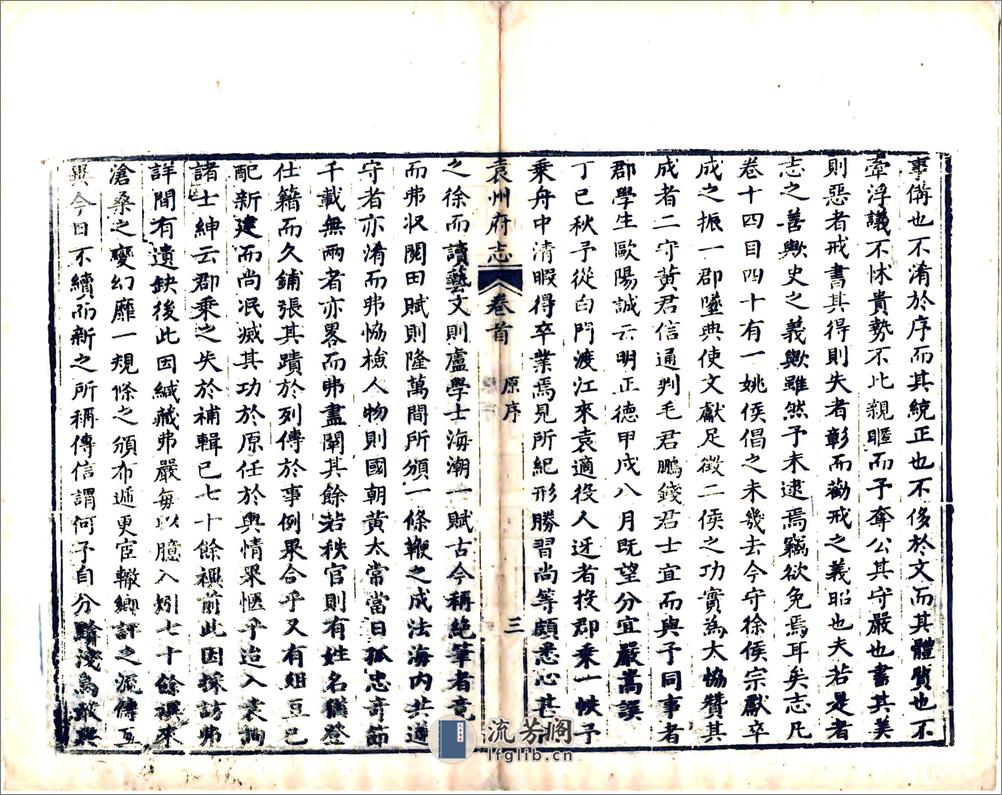 事備也不淆於序而其統正也不侈於文而其體質也不
牽浮議不怵貴勢不比親暱而予奪公其守嚴也書其美
則惡者戒書其得則失者彰而勸戒之義昭也夫若是者
志之善歟史之義歟雖然予未逮焉竊欲免焉耳矣志凡
卷十四目四十有一姚侯倡之未幾去今守徐侯宗獻卒
成之振一郡墜典使文獻足徵二侯之功實為大協贊其
成者二守黃君信通判毛君鵬錢君士宜而與予同事者
郡學生歐陽誠云明正德甲戌八月既望分宜嚴嵩譔
丁巳秋予從白門渡江來袁適役人迓者投郡乘一帙予
乘舟中清暇得卒業焉見所紀形勝習尚等頗悉心甚
袁州府志 卷首 原序 三
之徐而讀藝文則盧學士海潮一賦古今稱絕筆者竟
而弗收閱田賦則隆萬間所頒一條鞭之成法海内共遵
守者亦淆而弗恊檢人物則國朝黃太常當日孤忠奇節
千載無兩者亦畧而弗盡闡其餘若秩官則有姓名猶登
仕籍而久鋪張其蹟於列傳於事例果合乎又有俎豆已
配新建而尚泯滅其功於原任於輿情果愜乎迨入袁詢
諸士紳云郡乘之失於補輯已七十餘禩前此因採訪弗
詳間有遺缺後此因緘藏弗嚴每以臆入矧七十餘禩來
滄桑之變幻靡一規條之頒布遞更宦轍鄉評之流傳互
異今日不續而新之所稱傳信謂何予自分黭淺烏敢與
流芳阁
lfglib.cn